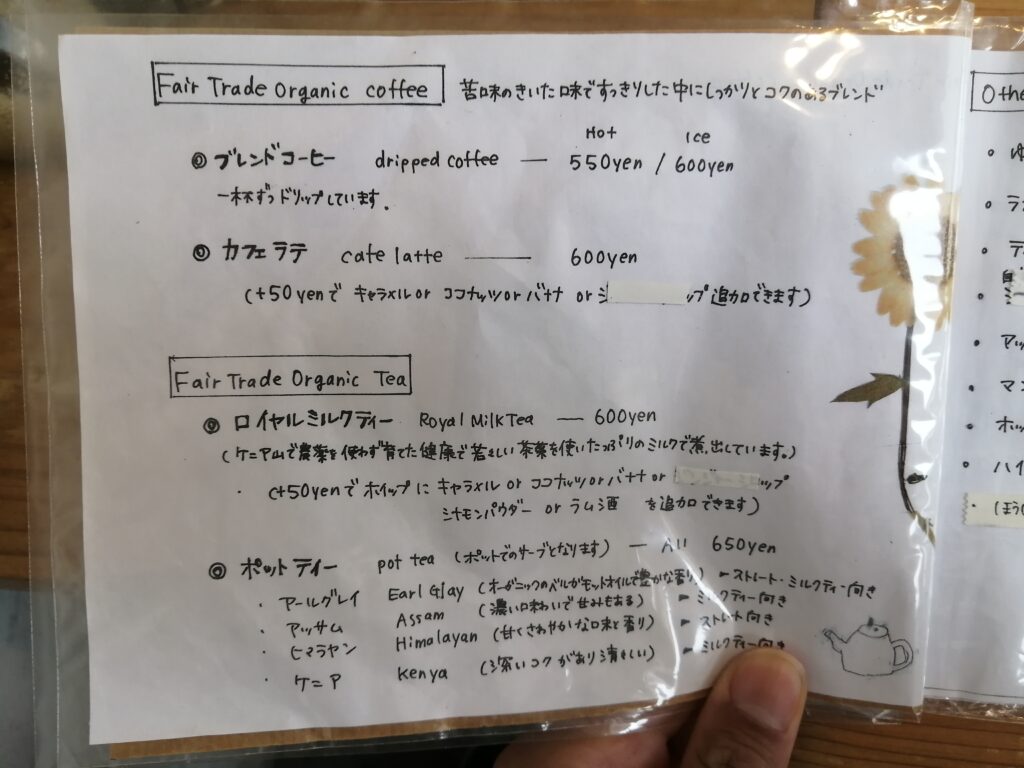 Fair Trade Organic coffee 苦味のきいた味ですっきりした中にしっかりとコクのあるブレンド
Hot Ice
◎ ブレンドコーヒー dripped coffee — 550yen / 600yen
一杯ずつドリップしています。
◎ カフェラテ cafe latte — 600yen
(+50yenで キャラメル or ココナッツ or バナナ or シ ップ 追加できます)
Fair Trade Organic Tea
◎ ロイヤルミルクティー Royal Milk Tea — 600yen
(ケニア山で農薬を使わず育てた健康で若々しい茶葉を使いたっぷりのミルクで煮出しています。)
・ (+50yenで ホイップに キャラメル or ココナッツ or バナナ or ップ
シナモンパウダー or ラム酒 を追加できます)
◎ ポットティー pot tea (ポットでのサーブとなります) — All 650yen
・ アールグレイ Earl Glay (オーガニックのベルガモットオイルで豊かな香り) ► ストレート・ミルクティー向き
・ アッサム Assam (濃い味わいで甘みもある) ► ミルクティー向き
・ ヒマラヤン Himalayan (甘くさわやかな味と香り) ► ストレート向き
・ ケニア Kenya (深いコクがあり清々しい) ► ミルクティー向き
Othe
・ ゆ
・ ラ
・ テ
自
・ シー
・ アッ
・ マン
・ ホッ
・ ハイ
・ (ほうじ